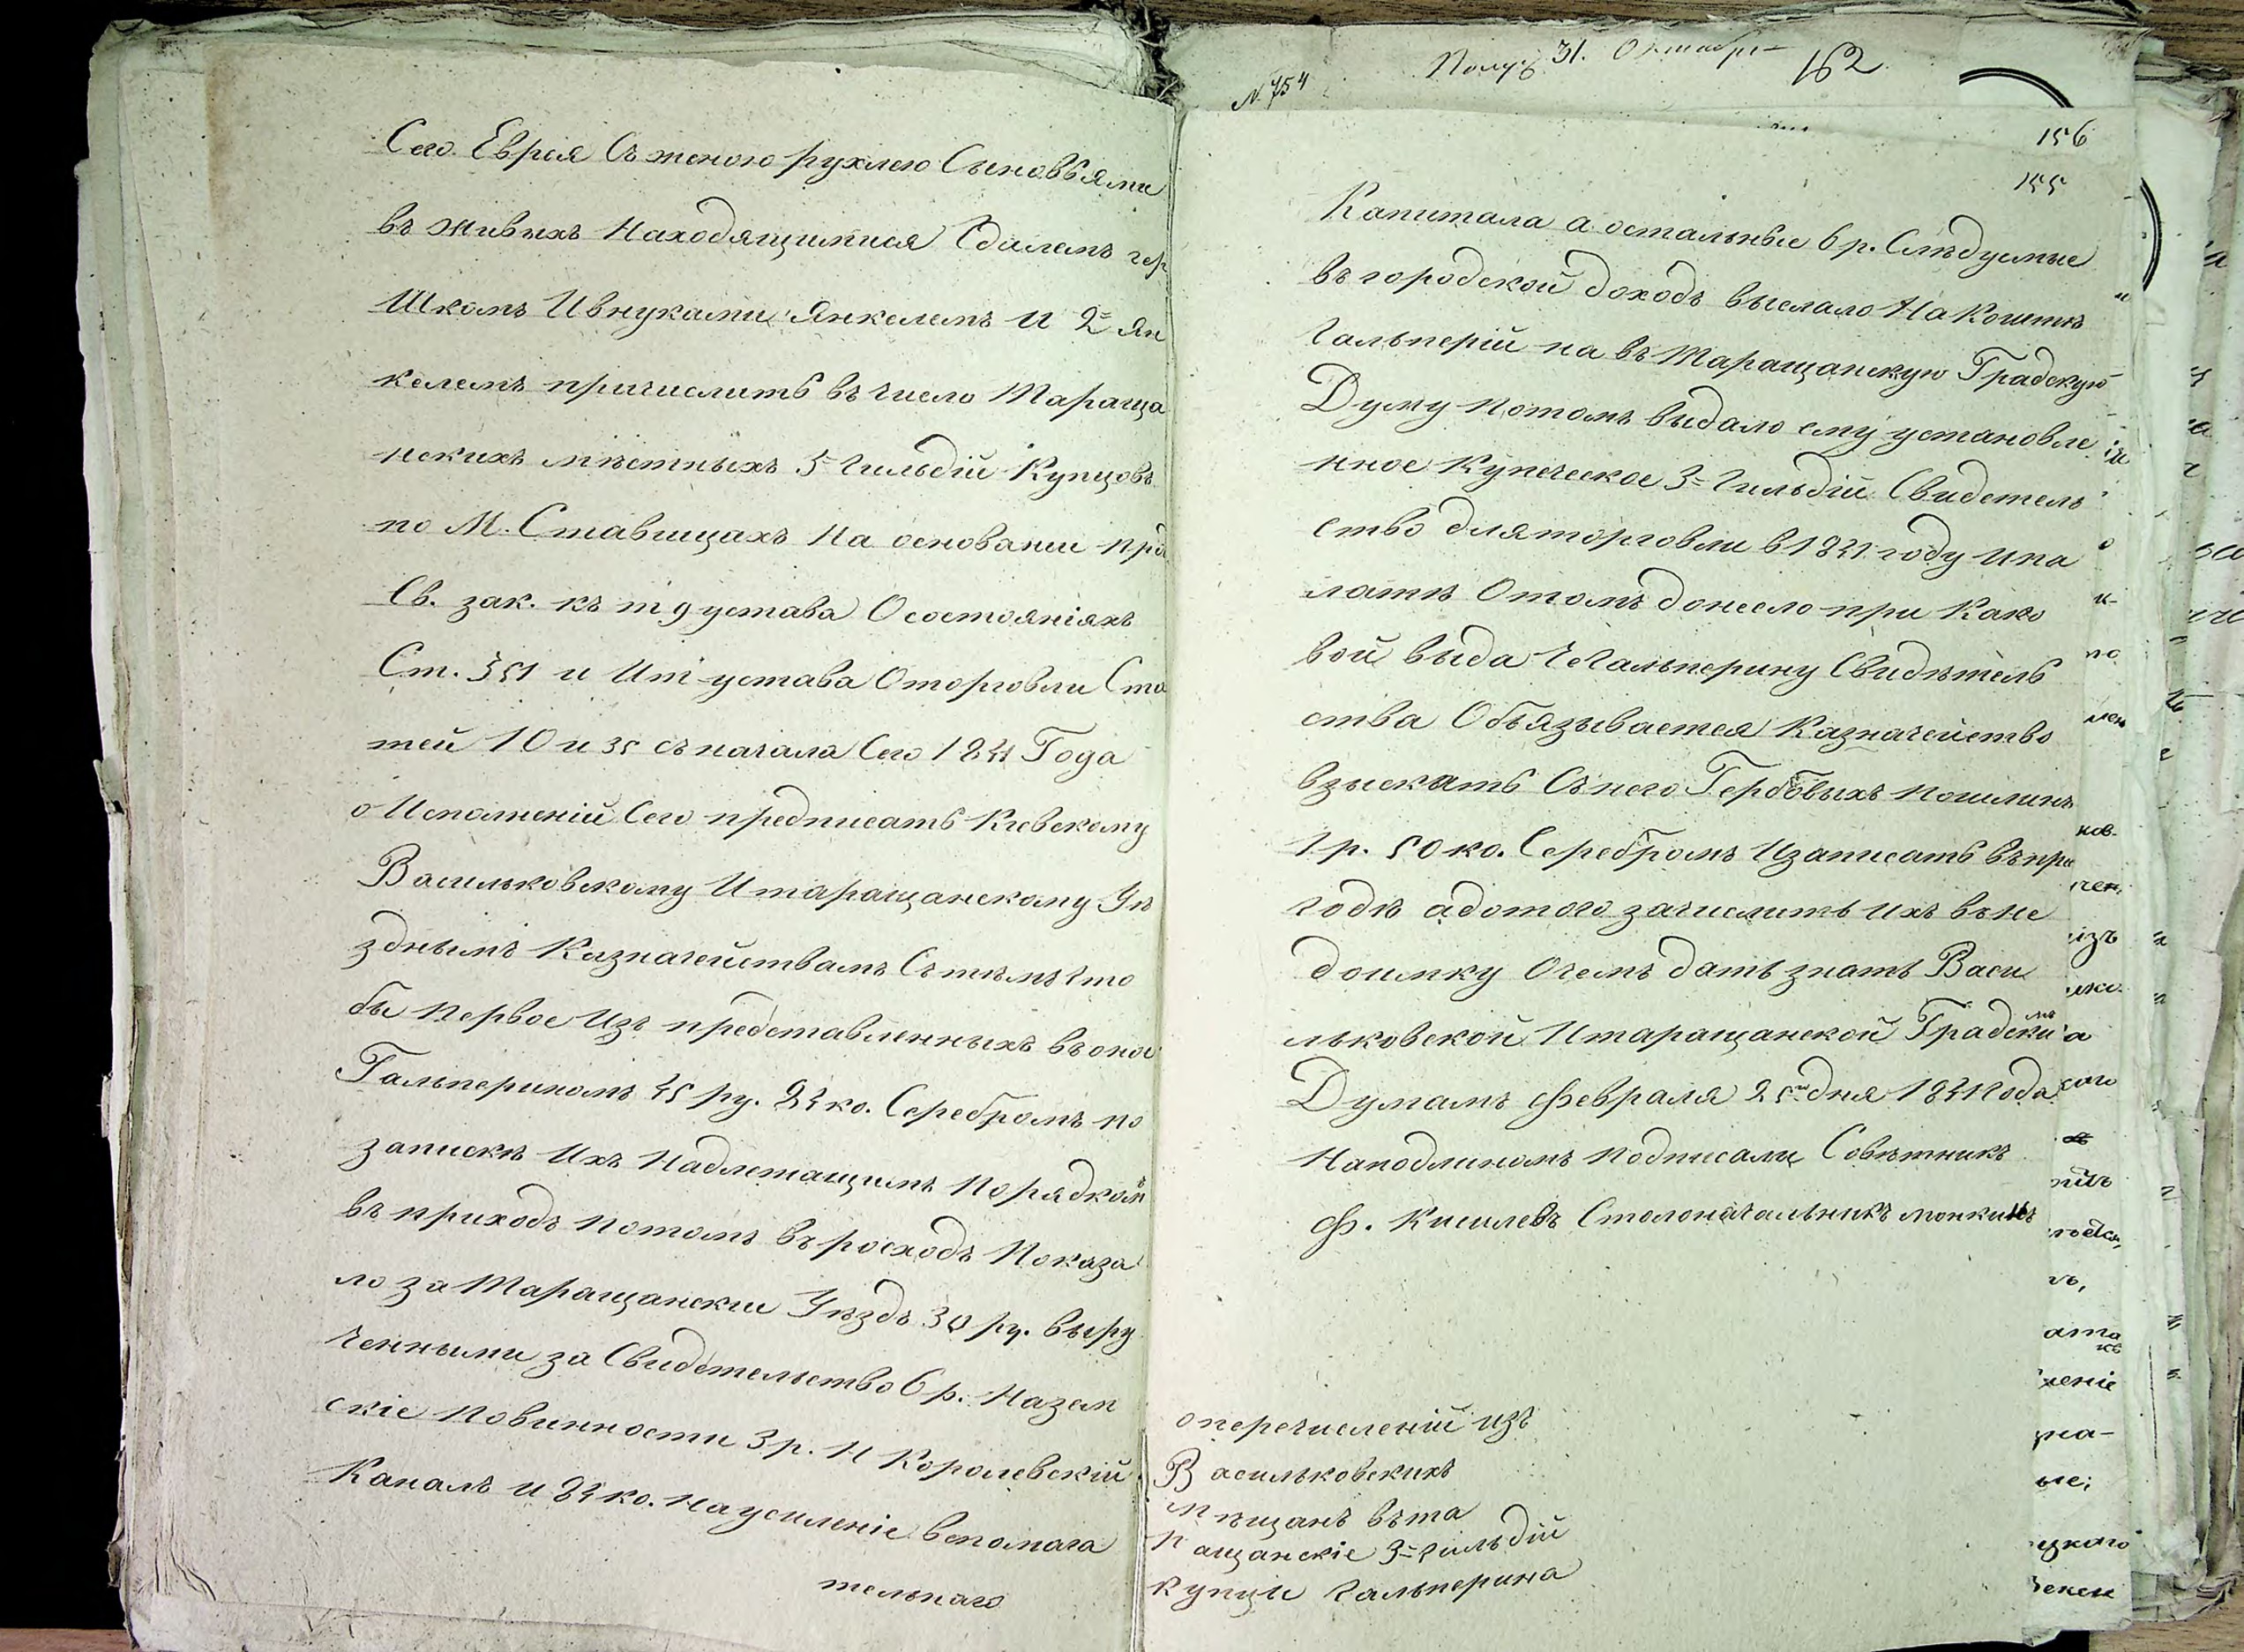 Сего Еврея Съ женою рухлею Сыновьями
въ живыхъ Находящимися Сдалемъ гер
Шкомъ Ивнуками Янкелемъ и 2м Ян
келемъ причислить въ число Тараща
нскихъ мѣстныхъ 3й Гильдіи Купцовъ
по М. Ставищахъ На основании
Св. зак. къ т 9 устава О состояніяхъ
Ст. 351 и Ит устава Оторговли Ста
тей 10 и 35 съ начала Сего 1841 Года
о Исполненій Сего предписать Кіевскому
Васильковскому Итаращанскому Уѣ
зднымъ Казначействамъ Съ тѣмъ что
бы первое Изъ представленныхъ въ оное
Гальпериномъ 45 ру. 84 ко. Серебромъ по
запискѣ Ихъ Надлежащимъ порядкомъ
въ приходъ потомъ въ росходъ показа
ло за Таращанскии Уѣздъ 30 ру. выру
ченными за Свидетельство 6 р. Назем
скіе повинности 3 р. Н Королевскій
Каналъ и 84 ко. На усиленіе вспомога
тельнаго
№ 754
Получ. 31. Октября
162
156
155
Капитала а остальные 6 р. Слѣдуемые
въ городской доходъ выслало На Коштъ
Гальперій на въ Таращанскую Градскую
Думу потомъ выдало ему установле
нное Купеческое 3й Гильдіи Свидетель
ство для торговли в 1841 году ипа
латѣ Отомъ донесло при Како
вой выда че Гальперину Свидѣтель
ства Объязывается Казначейство
взыскать Съ него Гербовыхъ пошлинъ
1 р. 50 ко. Серебромъ Изаписать въ при
ходъ адотого зачислить ихъ въ не
доимку Очемъ дать знать Васи
льковской Итаращанской Градскимъ
Думамъ февраля 25го дня 1841 Года
Наподлиномъ подписали Совѣтникъ
Ф. Киселевъ Столоначальникъ Монкинъ
о перечисленій изъ
Васильковскихъ
мѣщанъ въ та
ращанскіе 3й гильдій
купци Гальперина